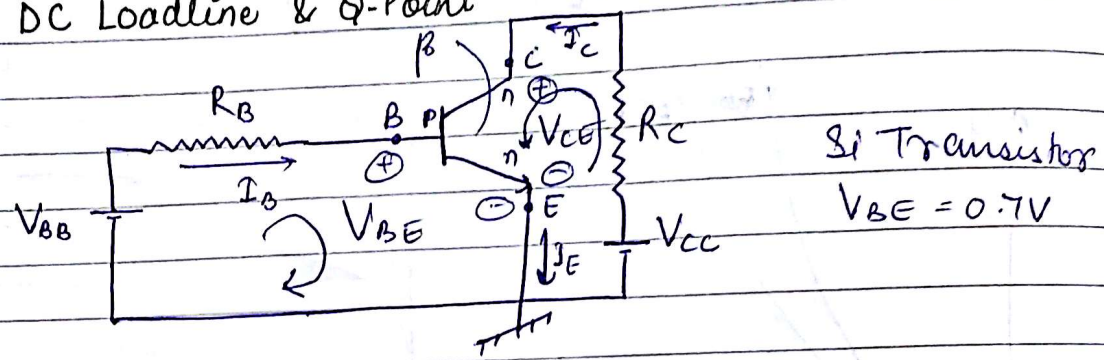 DC Loadline & Q-Point
β
I_C
C
n
+
R_B
B
P
V_CE
R_C
Si Transistor
+
n
-
I_B
V_BE
-
E
V_BE = 0.7V
V_BB
I_E
V_CC